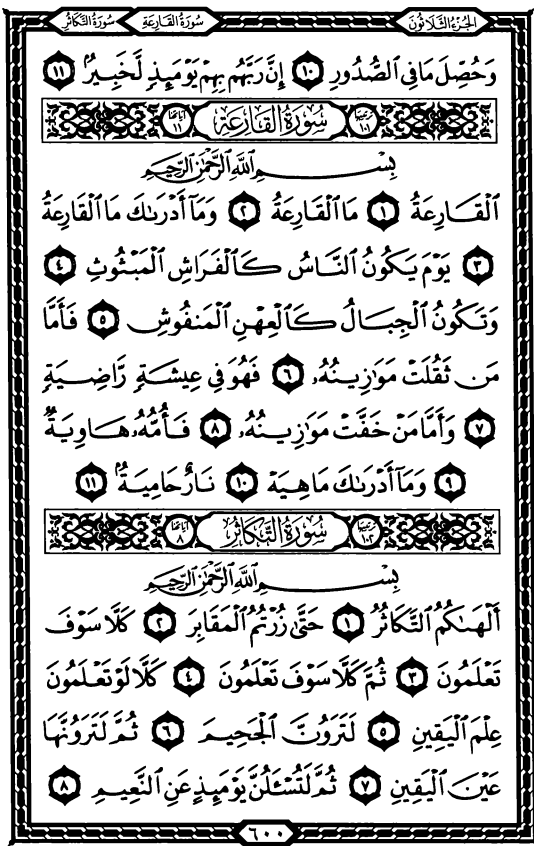 الجزء الثلاثون سورة القارعة سورة التكاثر
وَحُصِّلَ مَا فِى ٱلصُّدُورِ ١٠ إِنَّ رَبَّهُم بِهِمْ يَوْمَئِذٍ لَّخَبِيرٌۢ ١١
ترتيبها ١٠١ سُورَةُ القَارِعَةِ آياتها ١١
بِسْمِ ٱللَّهِ ٱلرَّحْمَٰنِ ٱلرَّحِيمِ
ٱلْقَارِعَةُ ١ مَا ٱلْقَارِعَةُ ٢ وَمَآ أَدْرَىٰكَ مَا ٱلْقَارِعَةُ
٣ يَوْمَ يَكُونُ ٱلنَّاسُ كَٱلْفَرَاشِ ٱلْمَبْثُوثِ ٤
وَتَكُونُ ٱلْجِبَالُ كَٱلْعِهْنِ ٱلْمَنفُوشِ ٥ فَأَمَّا
مَن ثَقُلَتْ مَوَٰزِينُهُۥ ٦ فَهُوَ فِى عِيشَةٍ رَّاضِيَةٍ
٧ وَأَمَّا مَنْ خَفَّتْ مَوَٰزِينُهُۥ ٨ فَأُمُّهُۥ هَاوِيَةٌ
٩ وَمَآ أَدْرَىٰكَ مَا هِيَهْ ١٠ نَارٌ حَامِيَةٌۢ ١١
ترتيبها ١٠٢ سُورَةُ التَّكَاثُرِ آياتها ٨
بِسْمِ ٱللَّهِ ٱلرَّحْمَٰنِ ٱلرَّحِيمِ
أَلْهَىٰكُمُ ٱلتَّكَاثُرُ ١ حَتَّىٰ زُرْتُمُ ٱلْمَقَابِرَ ٢ كَلَّا سَوْفَ
تَعْلَمُونَ ٣ ثُمَّ كَلَّا سَوْفَ تَعْلَمُونَ ٤ كَلَّا لَوْ تَعْلَمُونَ
عِلْمَ ٱلْيَقِينِ ٥ لَتَرَوُنَّ ٱلْجَحِيمَ ٦ ثُمَّ لَتَرَوُنَّهَا
عَيْنَ ٱلْيَقِينِ ٧ ثُمَّ لَتُسْـَٔلُنَّ يَوْمَئِذٍ عَنِ ٱلنَّعِيمِ ٨
٦٠٠